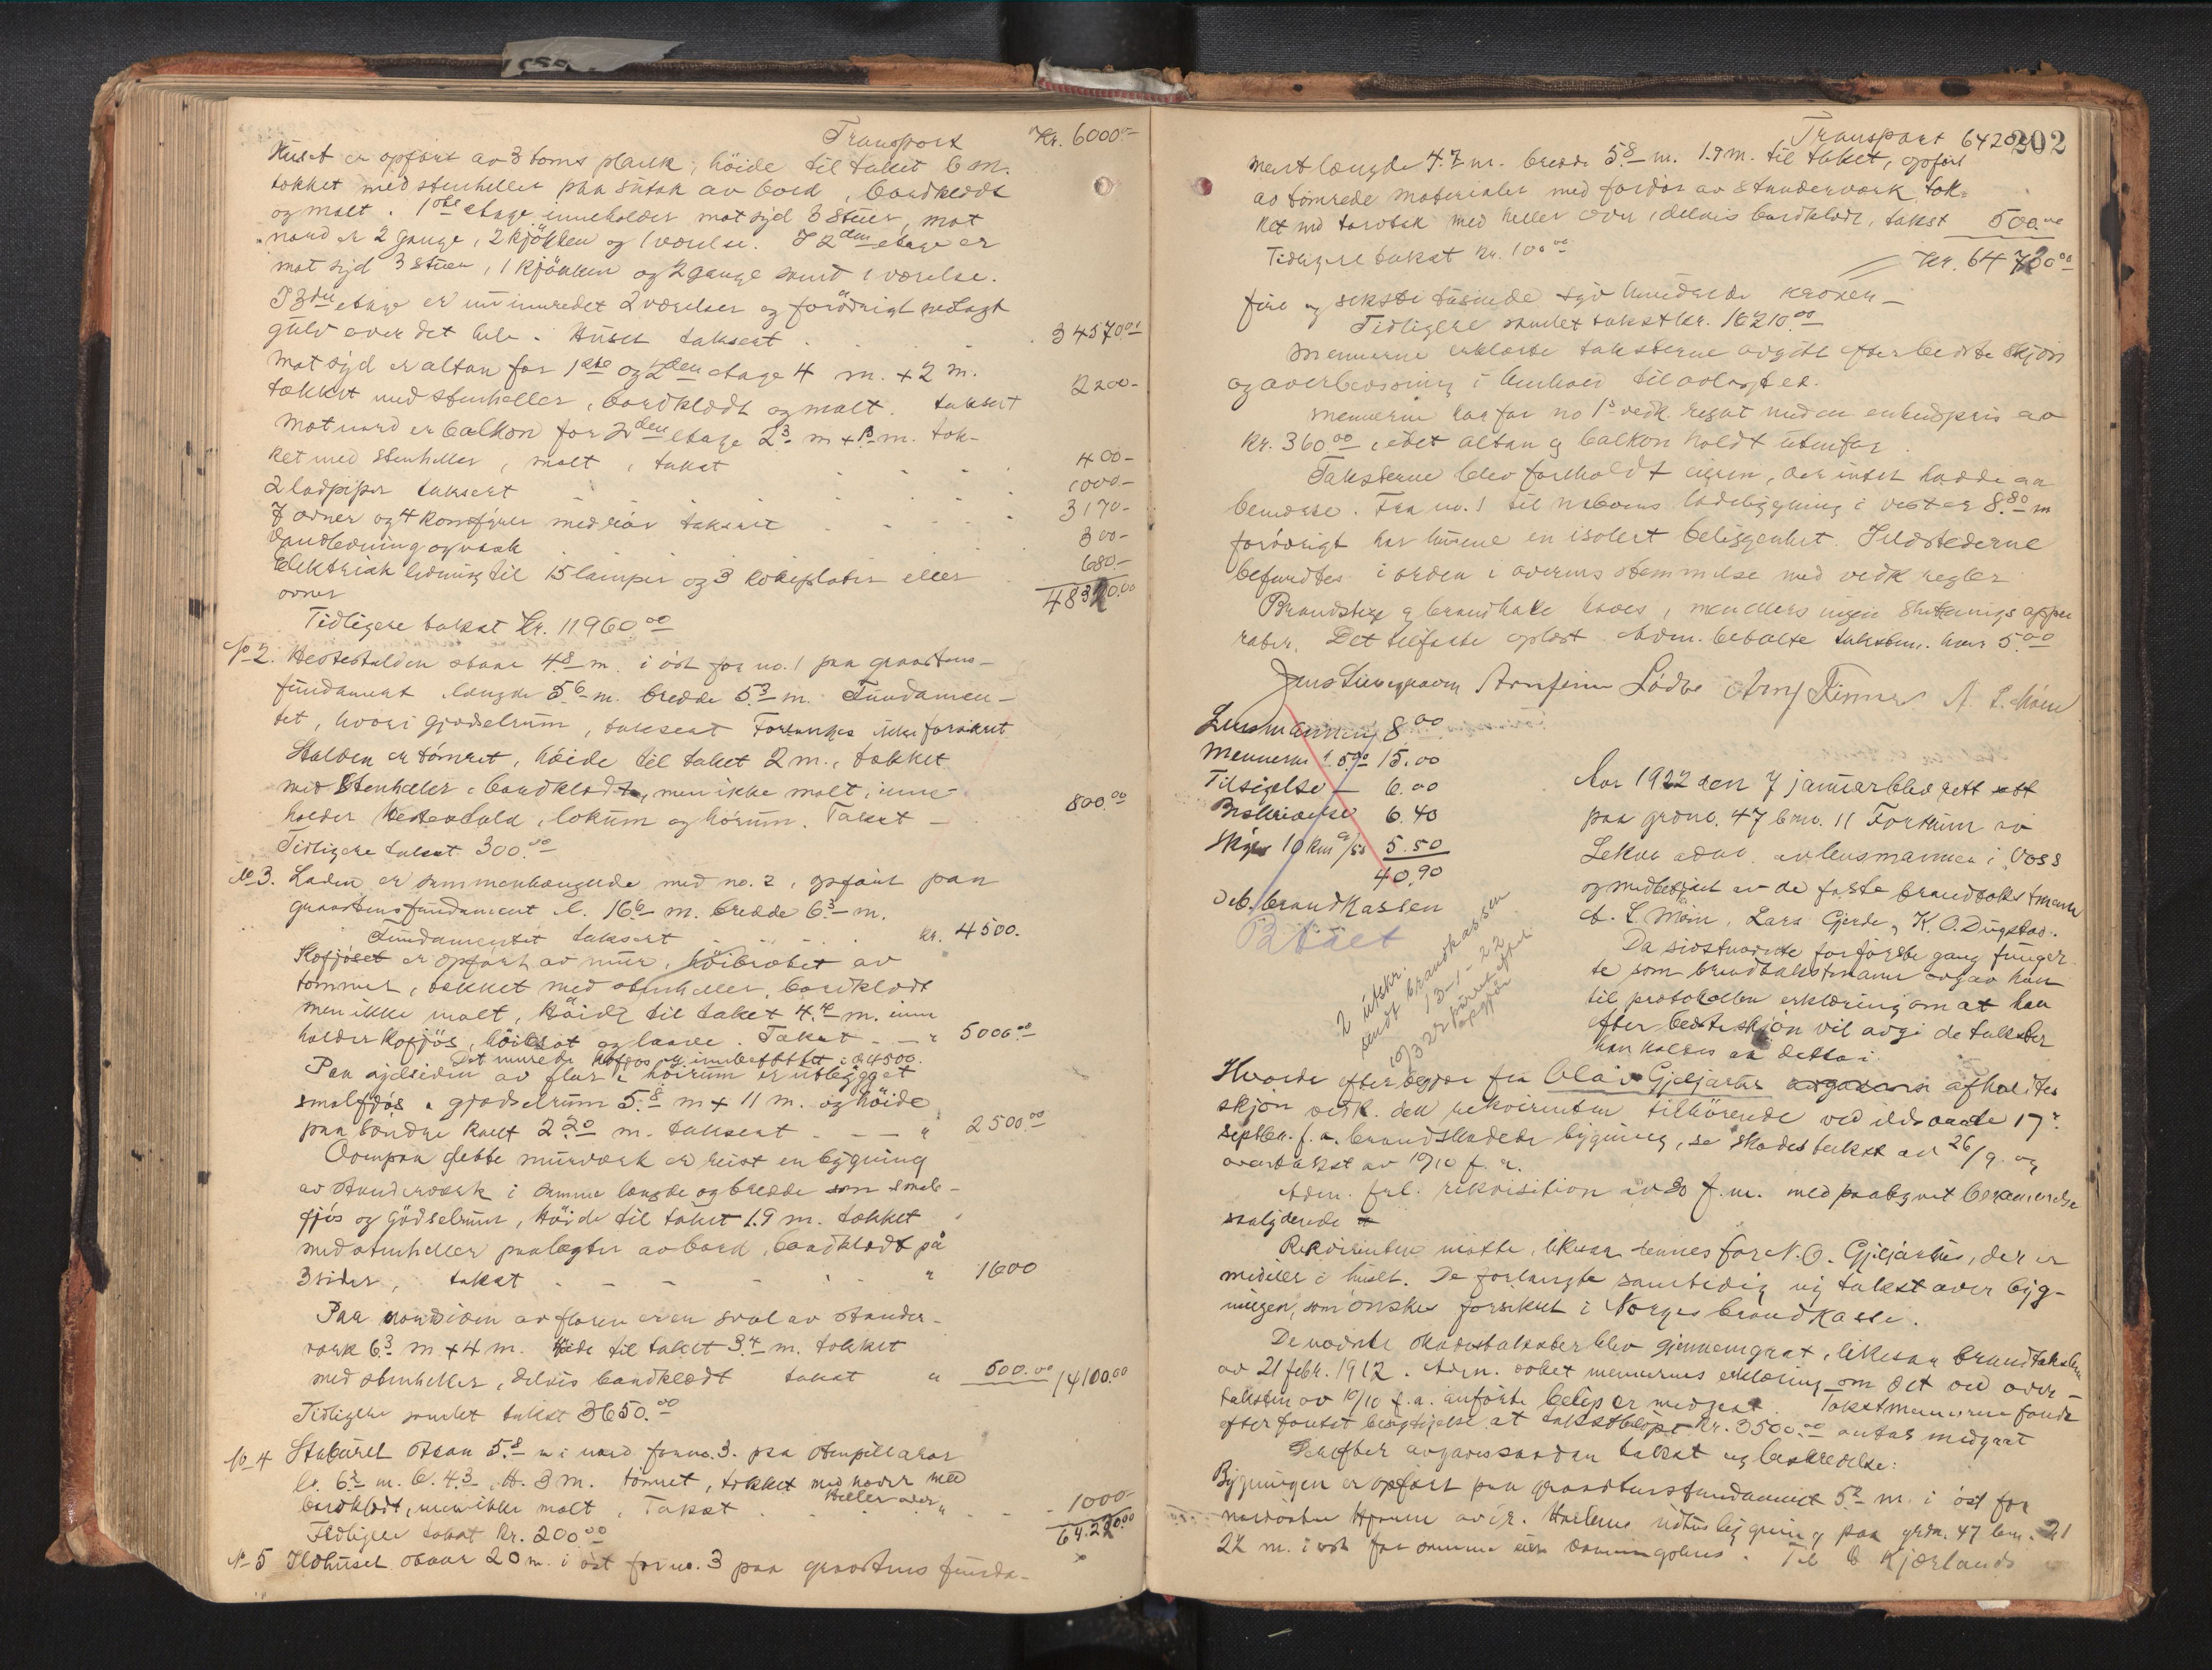 Transport Kr. 6000.-
Huset er opført av 3 toms plank, höide til taket 6 m.
tækket med stenheller paa sutak av bord, bordklædt
og malt. 1ste etage inneholder mot syd 3 stuer, mot
nord er 2 gange, 2 kjökken og 1 værelse. I 2den etage er
mot syd 3 stuer, 1 kjökken og 2 gange samt 1 værelse.
I 3die etage er nu innredet 2 værelser og forövrigt nedlagt
gulv over det hele. Huset taksert 34570.00
Mot syd er altan for 1ste og 2den etage 4 m. x 2 m.
tækket med stenheller, bordklædt og malt. taksert 2200-
Mot nord er balkon for 2den etage 2.3 m x m. tæk-
ket med stenheller, malt, takst 400-
2 ladpiper taksert 1000-
7 ovner og 4 komfyrer med rör taksert 3170-
Vandledning og vask 300-
Elektrisk ledning til 15 lamper og 3 kokeplater eller 680.-
ovner 48320.00
Tidligere takst kr. 11960.00
No 2. Hestestalden staar 4.8 m. i öst for no. 1 paa graastens-
fundament længde 5.6 m. bredde 5.3 m. Fundamen-
tet, hvori gjødselrum, taksert Forlanges ikke forsikret
Stalden er tömret, höide til taket 2 m., tækket
med Stenheller, bordklædt, men ikke malt, inne-
holder hestestald, lokum og hörum. Takst - 800.00
Tidligere takst 300.00
No 3. Laden er sammenhængende med no. 2, opført paa
graastensfundament l. 16.6 m. bredde 6.3 m.
Fundamentet taksert kr. 4500.
Kofjöset er opført av mur, höibrobet av
tömmer, tækket med stenheller, bordklædt
men ikke malt, Höide til taket 4.4 m. inne
holder kofjös, og laave. Takst - " 5000.00
Det murede kofjös er innbefattet i de 4500.
Paa sydsiden av flor & höirum er utbygget
smalfjös & gjödselrum 5.8 m x 11 m. og höide
paa söndre kant 2.20 m. taksert - - " 2500.00
Ovenpaa dette murværk er reist en bygning
av Stenderværk i samme længde og bredde som smale-
fjös og Gjödselrum, Höide til taket 1.9 m. tækket
med stenheller paalegter av bord, bordklædt på
3 sider, takst " 1600
Paa nordsiden av floren er en sval av stender-
værk 6.3 m x 4 m. Höide til taket 3.4 m. tækket
med stenheller, delvis bordklædt takst " 500.00 14100.00
Tidligere samlet takst 3650.00
No 4 Staburet staar 5.8 m i nord for no. 3. paa stenpillarer
l. 6.2 m. b. 4.3, H. 3 m. tömret, tækket med næver med
Heller over
bordklædt, men ikke malt, Takst 1000-
Tidligere takst kr. 200.00 64.220.00
No 5 Ildhuset staar 20 m. i öst for no. 3 paa graastens funda-
Transport 6420 202
ment længde 4.7 m. bredde 5.8 m. 1.9 m. til taket, opført
av tömrede materialer med fordör av stenderværk tæk-
ket med torvtak med heller over, delvis bordklædt, takst 500.00
Tidligere takst kr. 100.00 Kr. 64720.00
fire og seksti tusinde syv hundrede kroner -
Tidligere samlet takst kr. 16210.00
Mennerne erklærte taksterne avgitt efter bedste skjön
og overbevisning i henhold til avlagt ed.
Mennerne har for no 1's vedk. regnet med en enhedspris av
Kr. 360.00, idet altan og balkon holdt utenfor.
Taksterne blev forholdt eieren, der intet hadde aa
bemerke. Fra no. 1 til naboens ladebygning i vest er 8.80 m
forövrigt har husene en isolert beliggenhet. Ildstederne
befandtes i orden i overensstemmelse med vedk regler
Brandstige og brandhake haves, men ellers ingen slukningsappa
rater. Det tilförte oplæst. Adm. betalte takstm. hver 5.00
Arnfinn Lödve A. L. Mæen
Lensmannen 8.00
Mennerne á 5.00 15.00
Tilsigelse 6.00
Beskrivelse 6.40
Skyss 10 km á/55 5.50
40.90
Deb. brandkassen
Betalt
2 utskr.
sendt brandkassen
13-1-22
10/3 22 påført opp
opgjör
Aar 1922 den 7 januar blev rett
paa grdno. 47 bno. 11 Fortun av
Lekve adm. av lensmannen i Voss
og medbetjent av de faste brandtakstmenn
A. L. Mæen, Lars Gjerde, K. O. Dugstad.
Da sidstnævnte for første gang funger-
te som brandtakstmann avgav han
til protokollen erklæring om at han
efter bedste skjön vil avgi de takster
han kaldes til aa delta i.
Hvorda efter begjær fra Olav Gjeljarhus afholdtes
skjön vedk. den rekvirenten tilhörende ved ildsvaade 17'
septbr. f. a. brandskadede bygning, se skadestakst av 26/9. og
overtakst av 10/10 f. a.
Adm. frl. rekvisition av 30 f. m. med paategnet berammelse
saalydende
Rekvirenten mötte, likesaa hennes far N. O. Gjeljarhus, der er
medeier i huset. De forlangte samtidig ny takst over byg-
ningen, som önskes forsikret i Norges brandkasse.
De nævnte skadestakster blev gjennemgaat, likesaa brandtaksten
av 21 febr. 1912. Adm. æsket mennernes erklæring om det ved over-
taksten av 10/10 f. a. anförte belöp er medgaat. Takstmennerne fandt
efter foretat besigtigelse at takstbelöpet kr. 3500.00 antas medgaat
Derefter avgaves saadan takst og beskrivelse:
Bygningen er opfört paa graastensfundament 5.2 m. i öst for
nordöstre hjörne av utbygning paa grdn. 47 bn. 21
22 m. i vest for samme eiers vaaningshus. Til Kjærlands